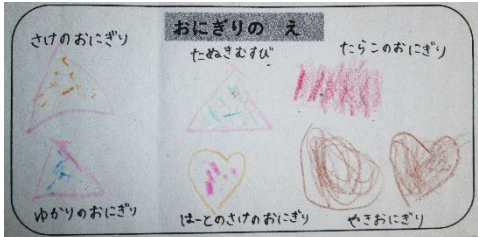 おにぎりの え
さけのおにぎり
たぬきむすび
たらこのおにぎり
ゆかりのおにぎり
はーとのさけのおにぎり
やきおにぎり